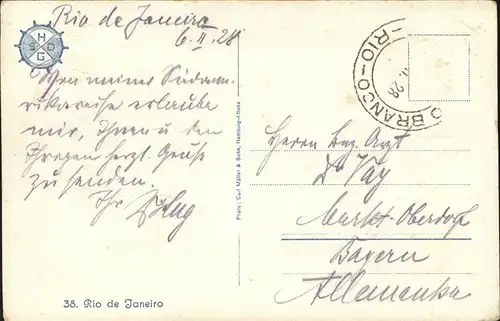 Rio de Janeiro
6. II. 28
H
S D
G
Von meiner Südam-
rikareise erlaube
mir, Ihnen u den
Ihrigen herzl. Grüße
zu senden.
Ihr
38. Rio de Janeiro
Photo: Carl Müller & Sohn, Hamburg-Altona
O BRANCO - RIO - O
28
Herrn Bez. Arzt
Dr Vay
Markt-Oberdorf
Bayern
Allemanha